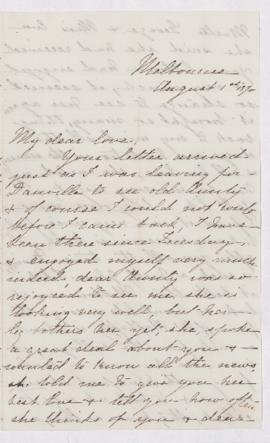 Melbourne
August 1st
My dear love.
Your letter arrived
just as I was leaving for
Danville to see old Aunty
& of course I could not write
before I came back, I have
been there since Tuesday
& enjoyed myself very much
indeed dear Aunty was so
rejoyced to see me, she is
looking very well, but her
bothers her yet, she spoke
a great deal about you &
wanted to know all the news
& told me to give you her
best love & tell you how often
she thinks of you & dear